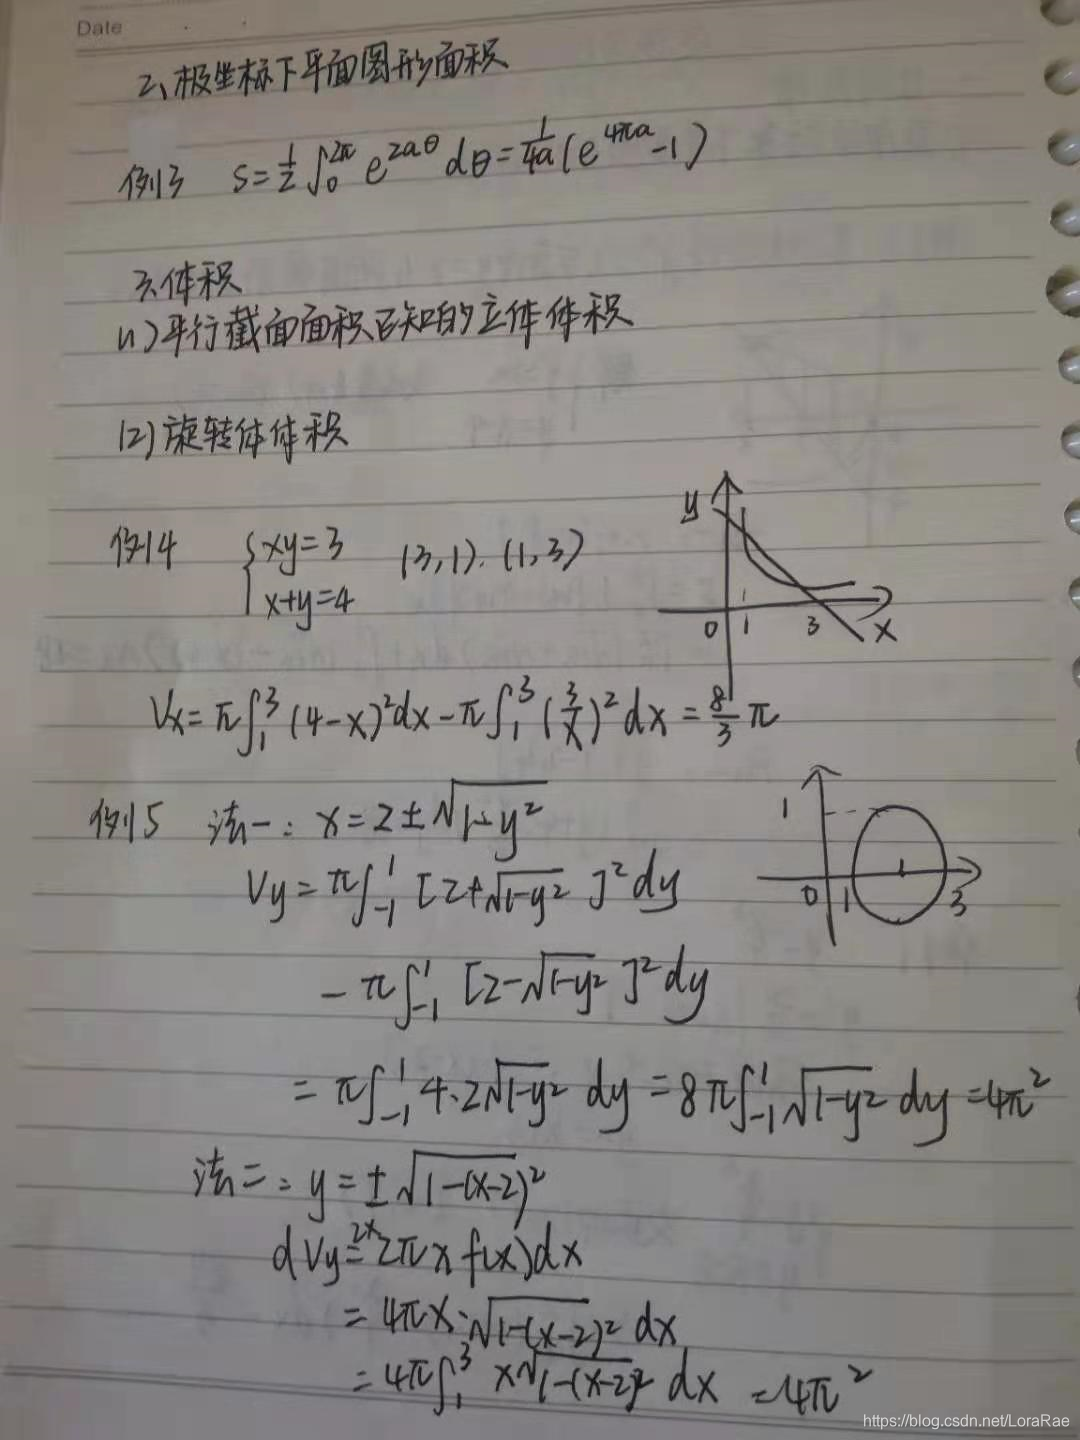 Date
2、极坐标下平面图形面积
例13 S=½∫₀^{2π} e^{2aθ} dθ = 1/4a (e^{4πa}-1)
3、体积
(1)平行截面面积已知的立体体积
(2)旋转体体积
例14 {xy=3 (3,1). (1,3)
x+y=4
y
0 1 1 3 x
Vx=π∫₁³(4-x)²dx-π∫₁³(3/x)²dx=8/3 π
例15 法一: x=2±√(1-y²)
1
0 1 1 3
Vy=π∫₋₁¹[2+√(1-y²)]²dy
-π∫₋₁¹[2-√(1-y²)]²dy
=π∫₋₁¹4·2√(1-y²) dy=8π∫₋₁¹√(1-y²) dy=4π²
法二: y=±√(1-(x-2)²)
dVy=2×2πx f(x)dx
=4πx·√(1-(x-2)²) dx
=4π∫₁³ x√(1-(x-2)²) dx =4π²
https://blog.csdn.net/LoraRae